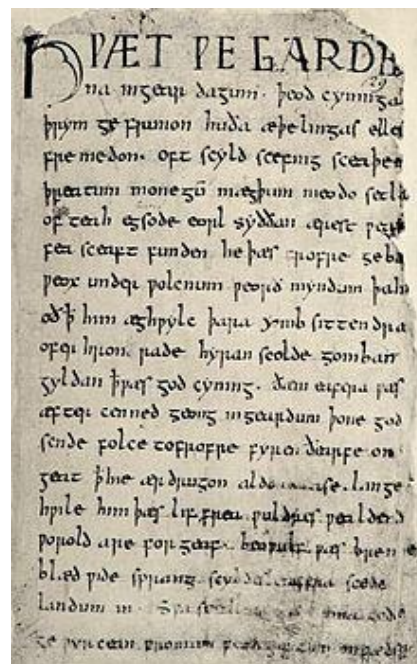 HǷÆT ǷE GARDE
na ingear dagum. þeod cyninga
þrym ge frunon huða æþelingas elle
fremedon. oft scyld scefing sceaþe
þreatum monegū mægþum meodo setla
of teah egsode eorl syððan ærest
fea sceaft funden he þæs frofre geba
ƿeox under ƿolcnum ƿeorð myndum þah
oð ꝥ him æghƿylc þara ymb sittendra
ofer hron rade hyran scolde gomban
gyldan ꝥ ƿæs god cyning. ðæm eafera ƿæs
æfter cenned geong ingeardum þone god
sende folce tofrofre fyren ðearfe on
geat ꝥ hie ær drugon aldor ase. lange
hƿile him þæs lif frea ƿuldres ƿealdend
ƿorold are for geaf. beoƿulf ƿæs breme
blæd ƿide sprang scyldes eafera scede
landum in. Sƿa guma gode
ge ƿyrcean fromum feoh giftum